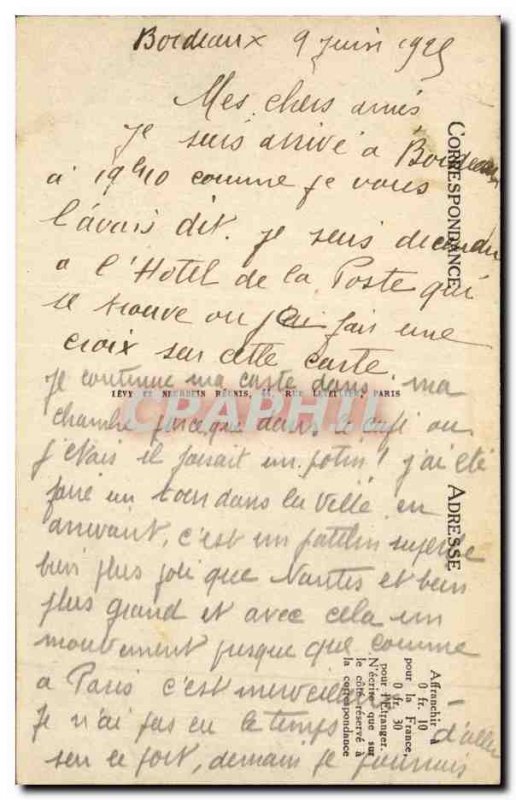 Bordeaux 9 Juin 1925
Mes chers amis
Je suis arrivé a Bordeaux
a 19h10 comme je vous
l'avais dit. je suis decendu
a l'Hotel de la Poste qui
se trouve ou j'ai fair une
croix sur cette carte
je continue ma carte dans ma
chambre parceque dans le café ou
j'etais il faisait un potin! j'ai été
faire un tour dans la ville en
arrivant, c'est un patelin superbe
bien plus joli que Nantes et bien
plus grand et avec cela un
mouvement presque que comme
a Paris c'est merveilleux
Je n'ai pas eu le temps d'aller
sur le port, demain je pourrais
CORRESPONDANCE
ADRESSE
LÉVY ET NEURDEIN RÉUNIS, 44, RUE LETELLIER, PARIS
CPAPHIL
Affranchir à
0 fr. 10
pour la France,
0 fr. 30
pour l'Étranger.
N'écrire que sur
le côté réservé à
la correspondance